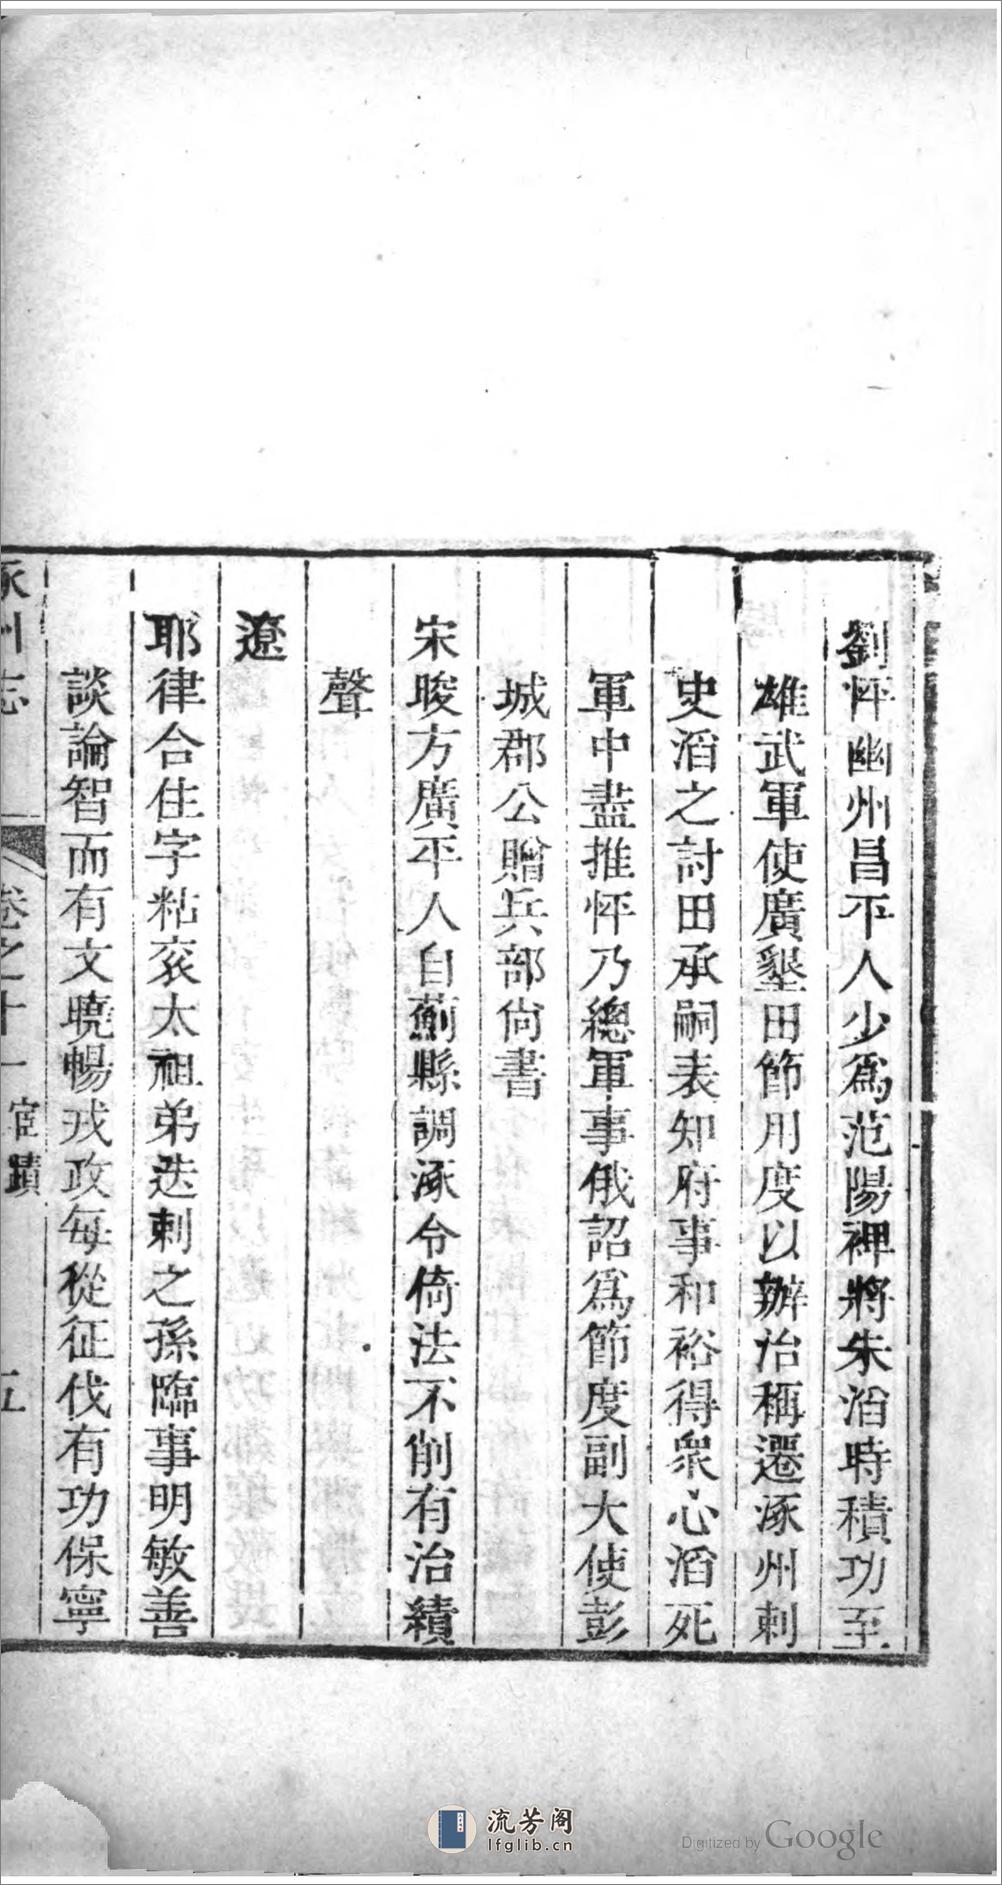 劉怦幽州昌平人少爲范陽裨將朱滔時積功至
雄武軍使廣墾田節用度以辦治稱遷涿州刺
史滔之討田承嗣表知府事和裕得衆心滔死
軍中盡推怦乃總軍事俄詔爲節度副大使彭
城郡公贈兵部尙書
宋晙方廣平人自薊縣調涿令倚法不削有治績
聲
遼
耶律合住字粘衮太祖弟迭剌之孫臨事明敏善
談論智而有文曉暢戎政每從征伐有功保寧
涿州志 卷之十一 宦蹟 五
流芳阁
lfglib.cn
Digitized by Google